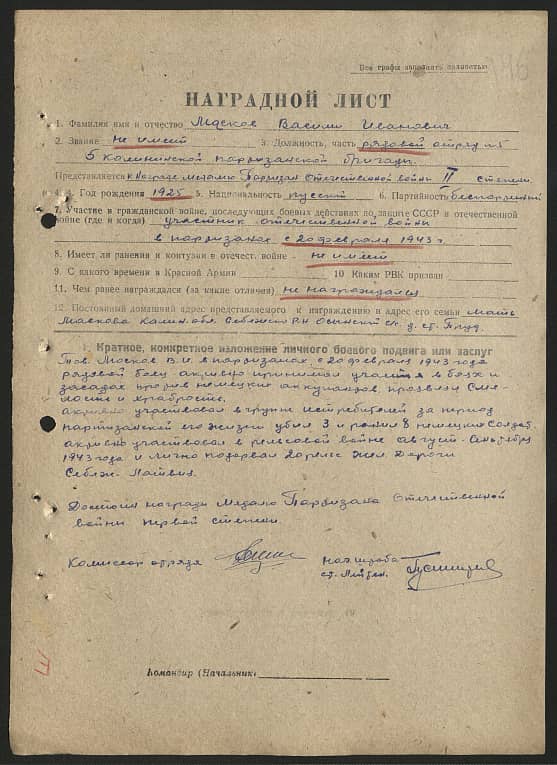 Все графы заполнять полностью
НАГРАДНОЙ ЛИСТ
1. Фамилия имя и отчество Москов Василий Иванович
2. Звание не имеет 3. Должность, часть рядовой отряд №5
5 Калининской партизанской бригады.
Представляется к Награде медалью Партизан Отечественной войны II степени
4. Год рождения 1925 5. Национальность русский 6. Партийность беспартийный
7. Участие в гражданской войне, последующих боевых действиях по защите СССР и отечественной
войне (где и когда) участник отечественной войны
в партизанах с 20 февраля 1943 г.
8. Имеет ли ранения и контузии в отечест. войне не имеет
9. С какого времени в Красной Армии 10 Каким РВК призван
11. Чем ранее награждался (за какие отличия) не награждался
12. Постоянный домашний адрес представляемого к награждению и адрес его семьи Мать
Москова Калин. обл. Себежский р-н Осинский с/с д. ст. Пруд.
1. Краткое, конкретное изложение личного боевого подвига или заслуг
Тов. Москов В.И. в партизанах с 20 февраля 1943 года
рядовой боец активно принимал участия в боях и
засадах против немецких оккупантов, проявлял сме-
лость и храбрость.
активно участвовал в группе истребителей за период
партизанской его жизни убил 3 и ранил 8 немецких солдат.
активно участвовал в рельсовой войне август-сентябрь
1943 года и лично подорвал 20 рельс жел. дороги
Себеж-Латвия.
Достоин награды Медалью Партизана Отечественной
войны первой степени.
Комиссар отряда
Нач. штаба
ст. Лейтен.
Командир (Начальник)